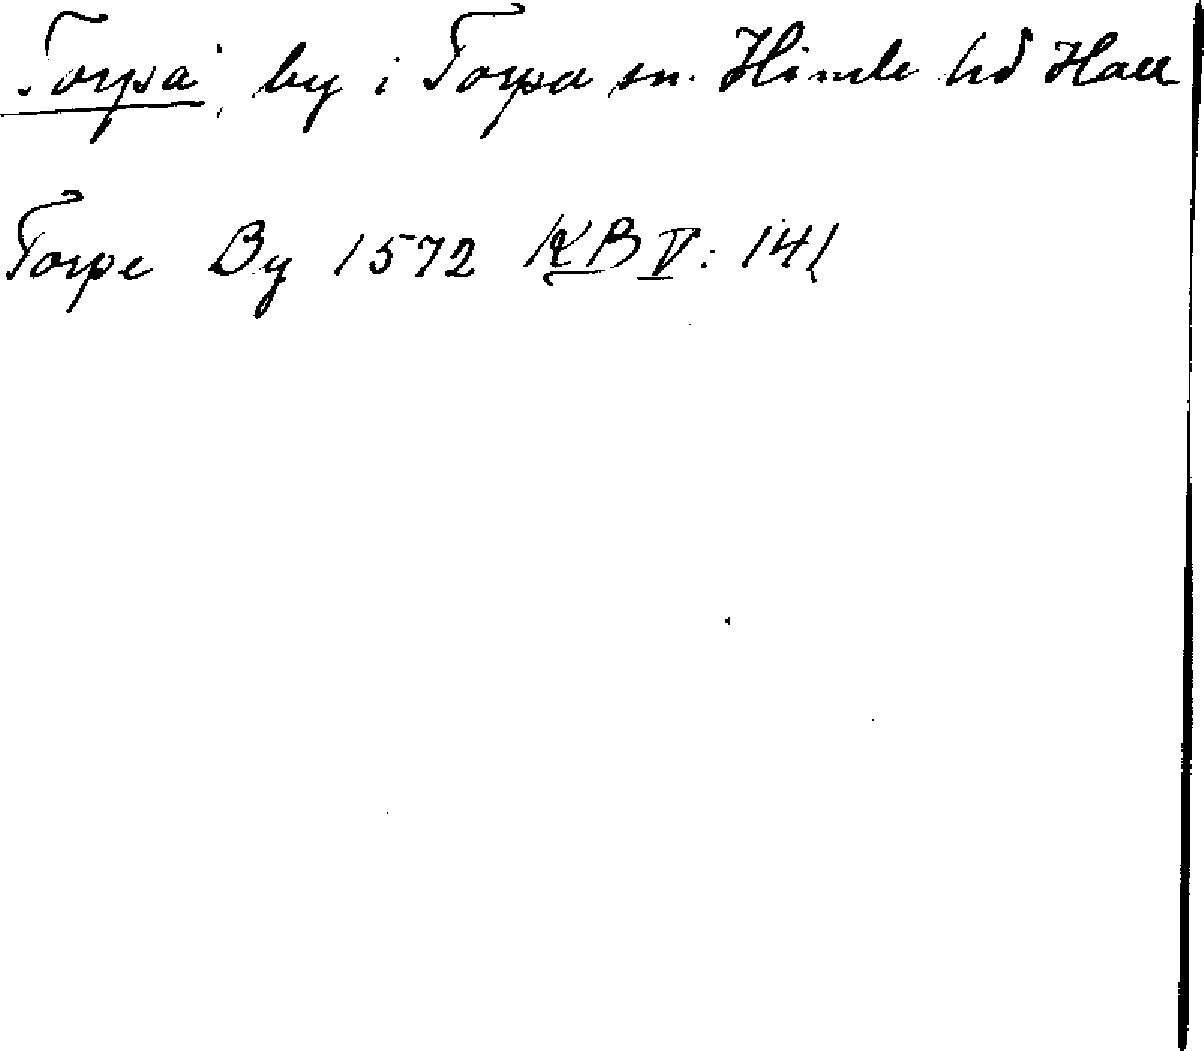 Torpa, by i Torpa sn. Himle hd Hall
Torpe By 1572 KB V: 141